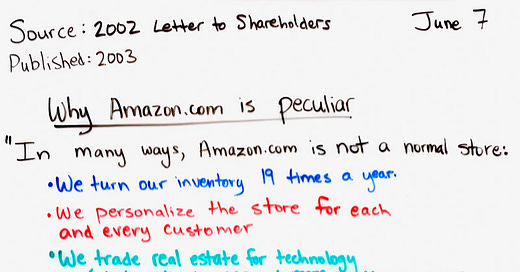 Source: 2002 Letter to Shareholders
June 7
Published: 2003
Why Amazon.com is peculiar
"In many ways, Amazon.com is not a normal store:
•We turn our inventory 19 times a year.
•We personalize the store for each
and every customer
•We trade real estate for technology